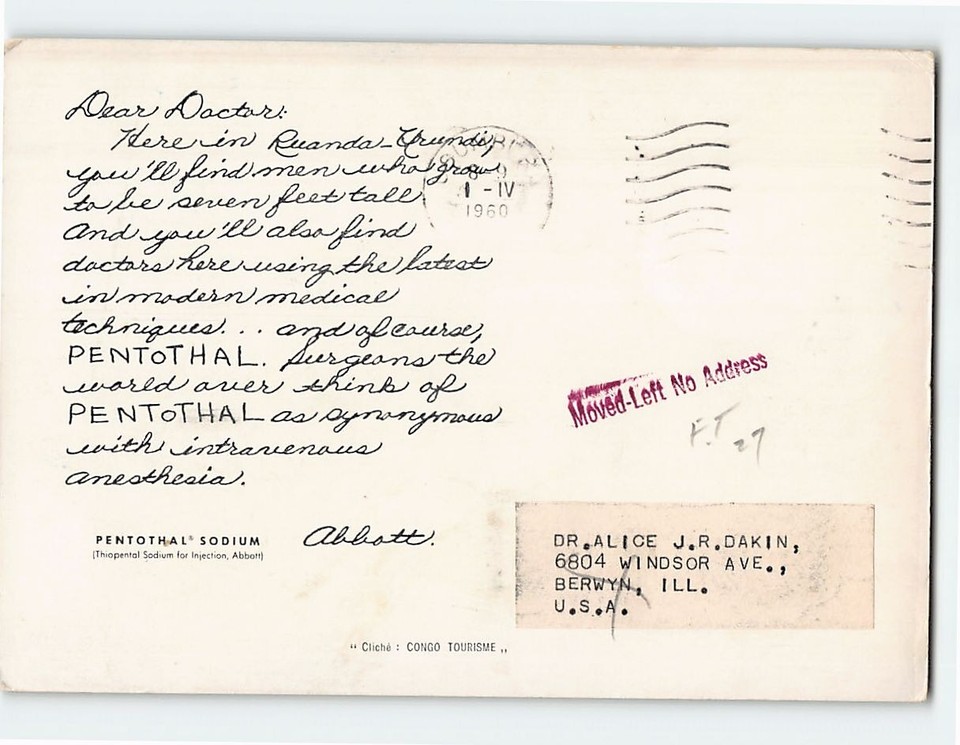 Dear Doctor:
Here in Ruanda-Urundi,
you'll find men who grow
to be seven feet tall
And you'll also find
doctors here using the latest
in modern medical
techniques... and of course,
PENTOTHAL. Surgeons the
world over think of
PENTOTHAL as synonymous
with intravenous
anesthesia.
Abbott.
PENTOTHAL® SODIUM
(Thiopental Sodium for Injection, Abbott)
1 -IV
1960
Moved-Left No Address
F.T
27
DR.ALICE J.R.DAKIN,
6804 WINDSOR AVE.,
BERWYN, ILL.
U.S.A.
" Cliché : CONGO TOURISME "